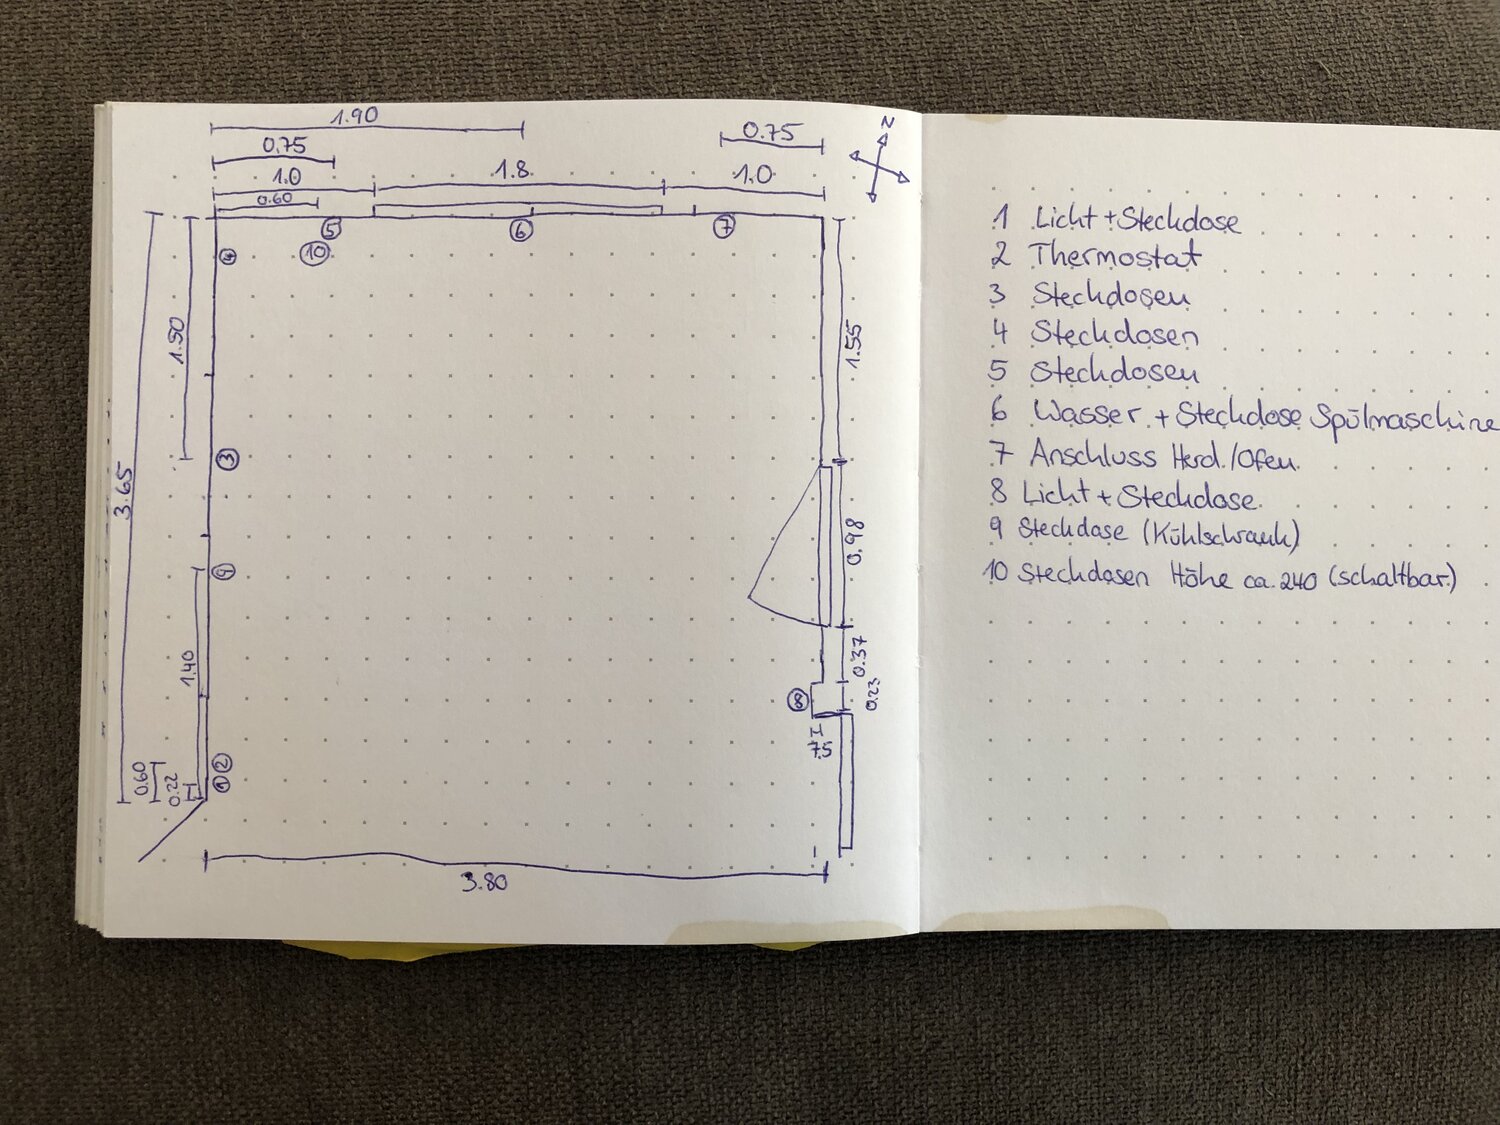 1.90
0.75
0.75
N
1.0
1.8
1.0
0.60
5
6
7
4
10
1.50
1.55
3
3.65
0.98
9
1.40
0.37
8
0.23
75
2
0.60
0.22
1
3.80
1 Licht + Steckdose
2 Thermostat
3 Steckdosen
4 Steckdosen
5 Steckdosen
6 Wasser + Steckdose Spülmaschine
7 Anschluss Herd/Ofen
8 Licht + Steckdose
9 Steckdose (Kühlschrank)
10 Steckdosen Höhe ca. 240 (schaltbar)